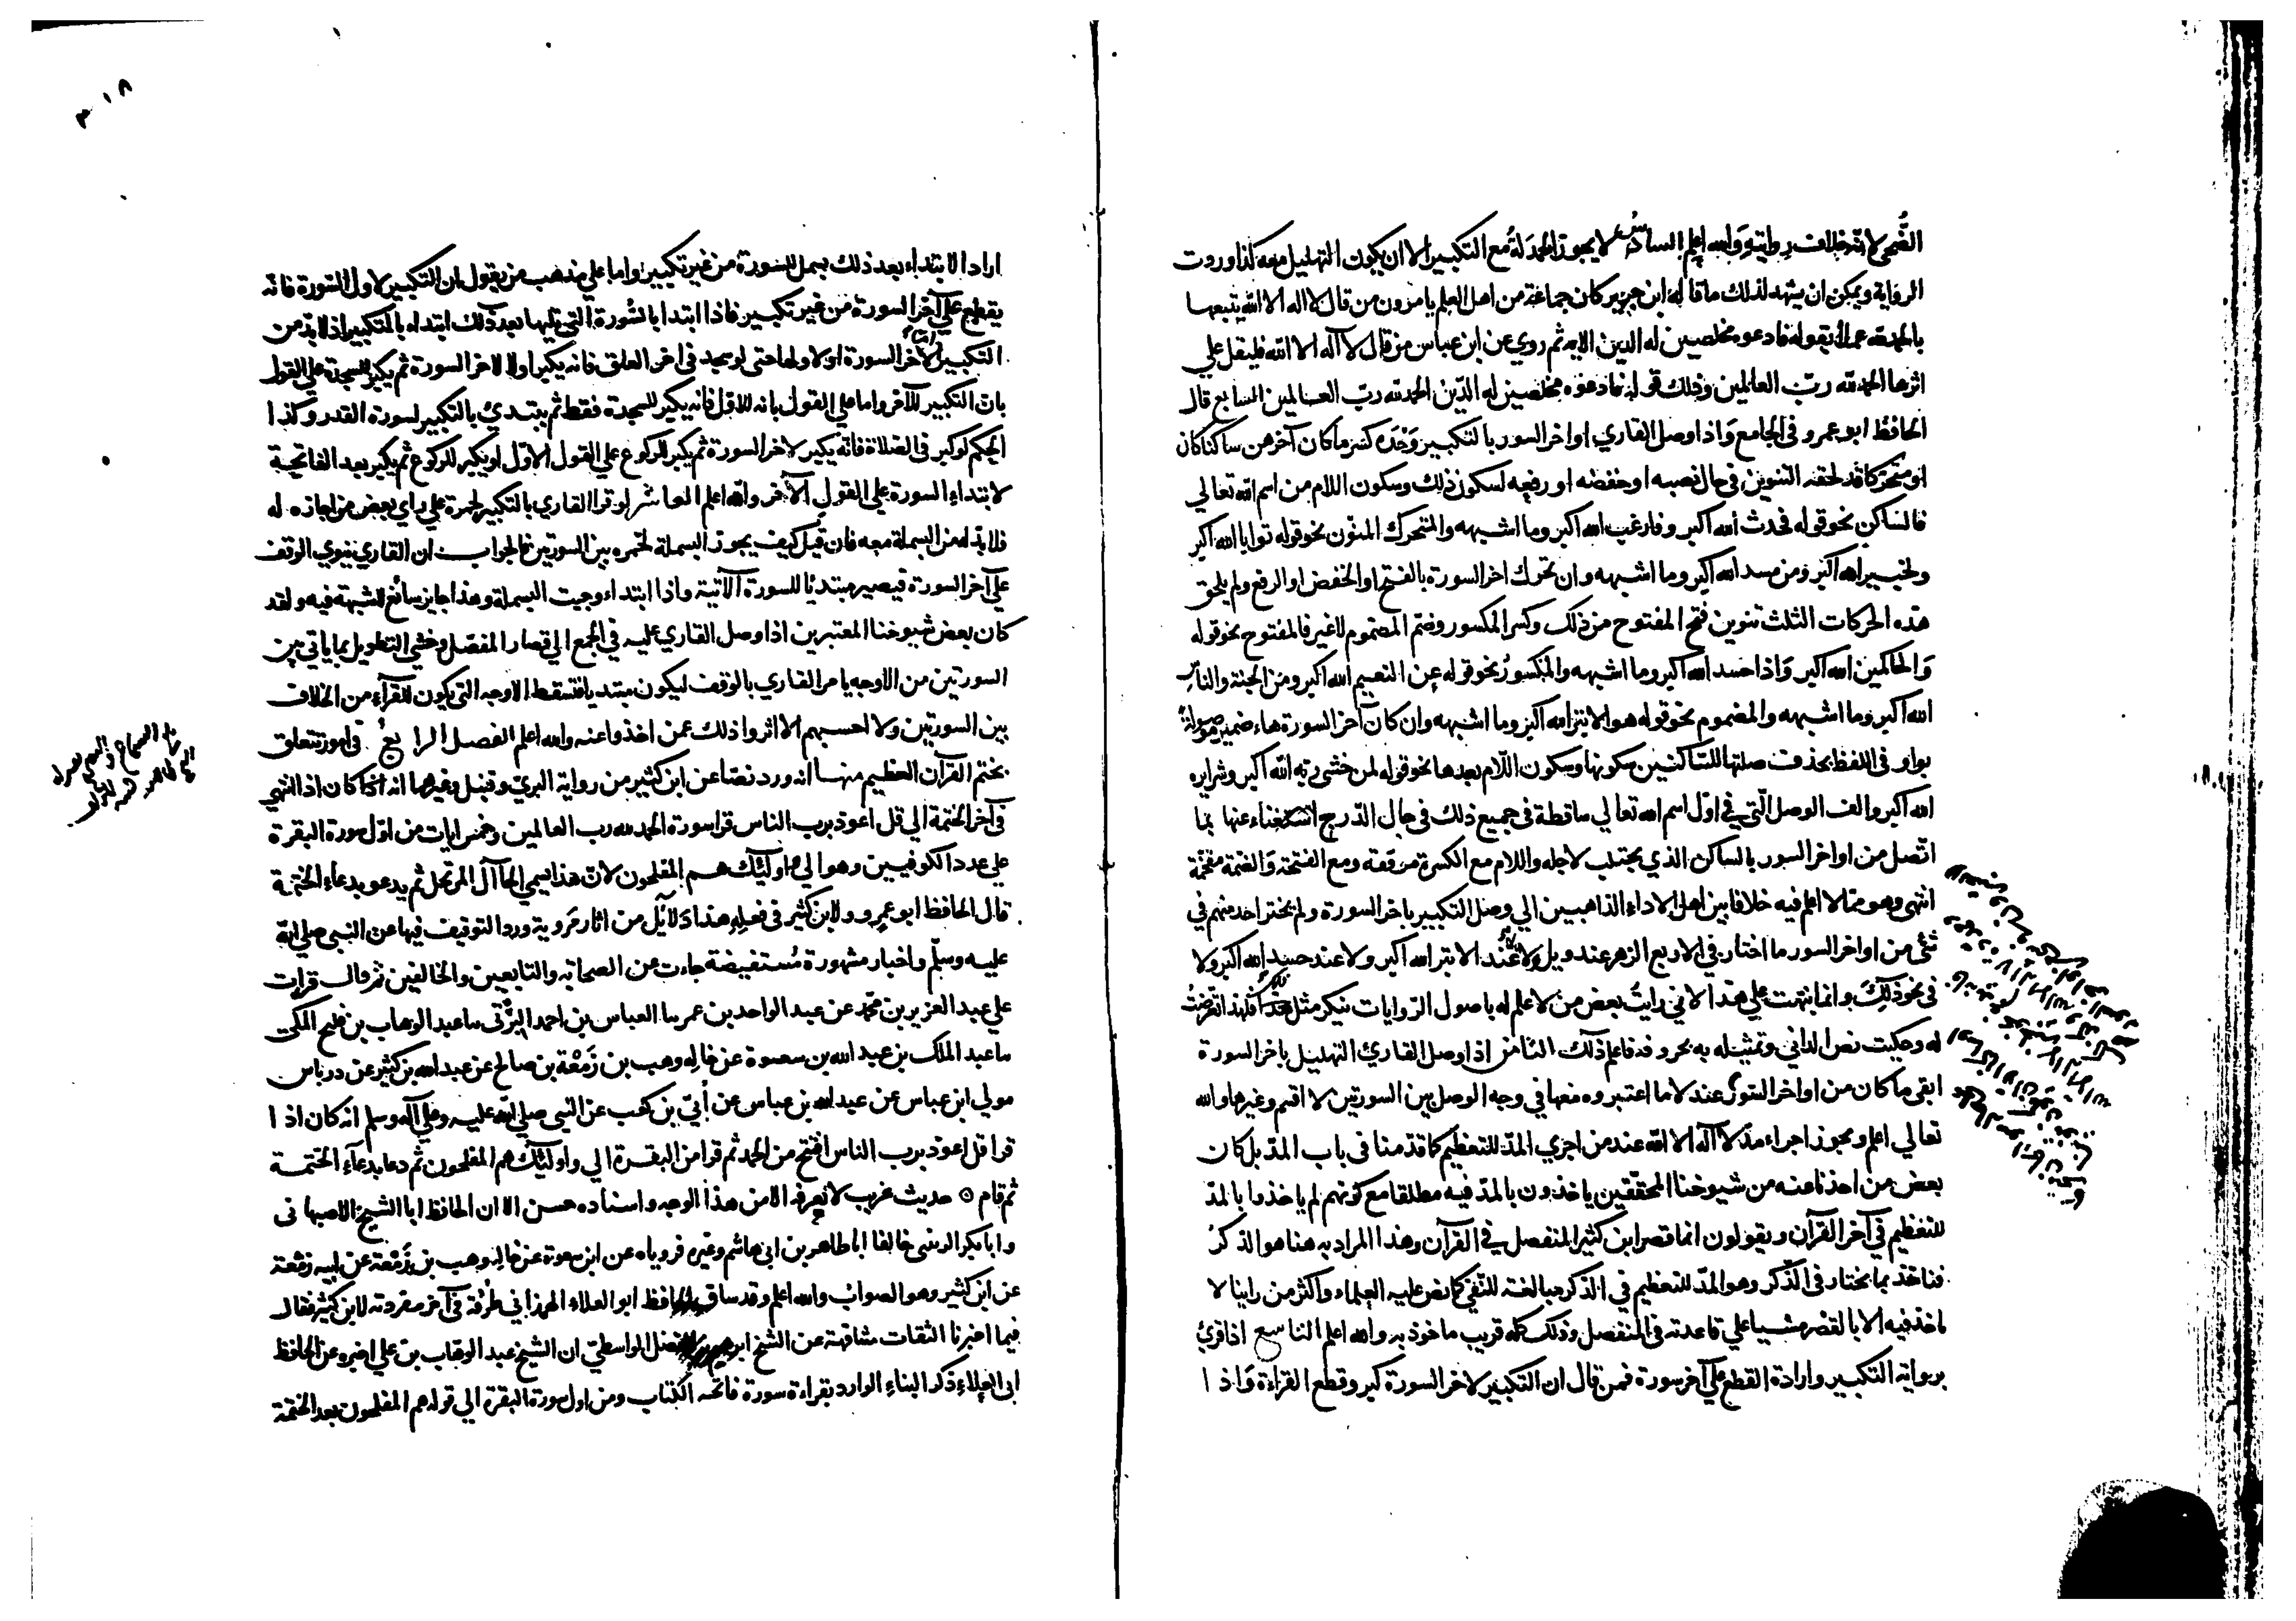 الضحى لانه خلاف روايته والله اعلم السادس لا يجوز الحمدلة مع التكبير الا ان يكون التهليل معه كذا وردت
الرواية ويمكن ان يشهد لذلك ما قاله ابن جرير كان جماعة من اهل العلم يامرون من قال لا اله الا الله يتبعها
بالحمد لله عملا بقوله فادعوه مخلصين له الدين الاية ثم روي عن ابن عباس من قال لا آله الا الله فليقل على
اثرها الحمد لله رب العالمين وذلك قوله فادعوه مخلصين له الدين الحمد لله رب العالمين السابع قال
الحافظ ابو عمرو فى الجامع واذا وصل القاري اواخر السور بالتكبير وحده كسر ما كان آخرهن ساكنا كان
او متحركا قد لحقه التنوين في حال نصبه او خفضه او رفعه لسكون ذلك وسكون اللام من اسم الله تعالي
فالساكن نحو قوله فحدث الله اكبر وفارغب الله اكبر وما اشبهه والمتحرك المنون نحو قوله توابا الله اكبر
ولخبير الله اكبر ومن مسد الله اكبر وما اشبهه وان تحرك اخر السورة بالفتح او الخفض او الرفع ولم يلحق
هذه الحركات الثلث تنوين فتح المفتوح من ذلك وكسر المكسور وضم المضموم لا غير فالمفتوح نحو قوله
والحاكمين الله اكبر واذا حسد الله اكبر وما اشبهه والمكسور نحو قوله عن النعيم الله اكبر ومن الجنة والناس
الله اكبر وما اشبهه والمضموم نحو قوله هو الابتر الله اكبر وما اشبهه وان كان آخر السورة هاء ضمير موصولة
بواو فى اللفظ بحذف صلتها للساكنين سكونها وسكون اللام بعدها نحو قوله لمن خشي ربه الله اكبر وشرا يره
الله اكبر والف الوصل التي في اول اسم الله تعالي ساقطة فى جميع ذلك فى حال الدرج استغناء عنها بما
اتصل من اواخر السور بالساكن الذي يجتلب لاجله واللام مع الكسرة مرققة ومع الفتحة والضمة مفخمة
انتهى وهو مما لا اعلم فيه خلافا بين اهل الاداء الذاهبين الي وصل التكبير باخر السورة ولم يختر احد منهم في
شئ من اواخر السور ما اختار في الاربع الزهر عند ويل ولا عند الابتر الله اكبر ولا عند حسد الله اكبر ولا
فى نحو ذلك وانما نبهت على هذا لاني رايت بعض من لا علم له باصول الروايات ينكر مثل ذلك فلهذا تعرضت
له وحكيت نص الداني وتمثيله به بحروفه فاعلم ذلك الثامن اذا وصل القارئ التهليل باخر السورة
ابقى ما كان من اواخر السور عند لا ما اعتبروه معها في وجه الوصل بين السورتين لا اقسم وغيرها والله
تعالي اعلم ويجوز اجراء مد لا آله الا الله عند من اجري المد للتعظيم كما قدمنا فى باب المد بل كان
بعض من اخذنا عنه من شيوخنا المحققين ياخذون بالمد فيه مطلقا مع كونهم لم ياخذوا بالمد
للتعظيم في آخر القرآن ويقولون انما قصر ابن كثير المنفصل في القرآن وهذا المراد به هنا هو الذكر
فناخذ بما يختار فى الذكر وهو المد للتعظيم في الذكر مبالغة للنفي كما نص عليه العلماء واكثر من راينا لا
ياخذ فيه الا بالقصر مشيا علي قاعدته فى المنفصل وذلك كله قريب ماخوذ به والله اعلم التاسع اذا قرئ
برواية التكبير وارادة القطع علي آخر سورة فمن قال ان التكبير لاخر السورة كبر وقطع القراءة واذا
٣١٨
اراد الابتداء بعد ذلك بسمل للسورة من غير تكبير واما علي مذهب من يقول ان التكبير لاول السورة فانه
يقطع علي آخر السورة من غير تكبير فاذا ابتدا بالسورة التي تليها بعد ذلك ابتداء بالتكبير اذ لا بد من
التكبير اما لاخر السورة او لاولها حتى لو سجد فى اخر العلق فانه يكبر اولا لاخر السورة ثم يكبر للسجدة علي القول
بان التكبير للآخر واما علي القول بانه للاول فانه يكبر للسجدة فقط ثم يبتدئ بالتكبير لسورة القدر وكذا
الحكم لو كبر فى الصلاة فانه يكبر لاخر السورة ثم يكبر للركوع علي القول الاول او يكبر للركوع ثم يكبر بعد الفاتحة
لابتداء السورة علي القول الآخر والله اعلم العاشر لو قرا القاري بالتكبير لحمزة علي راي بعض من اجازه له
فلا بد له من البسملة معه فان قيل كيف يجوز البسملة لحمزه بين السورتين فالجواب ان القاري ينوي الوقف
علي آخر السورة فيصير مبتديا للسورة الآتية واذا ابتداء وجبت البسملة وهذا جايز سائغ لا شبهة فيه ولقد
كان بعض شيوخنا المعتبرين اذا وصل القاري عليه في الجمع الي قصار المفصل وخشي التطويل بما ياتي بين
السورتين من الاوجه يامر القاري بالوقف ليكون مبتديا فتسقط الاوجه التي يكون للقرآء من الخلاف
بين السورتين ولا احسبهم الا اثروا ذلك عمن اخذوا عنه والله اعلم الفصل الرابع فى امور تتعلق
بختم القرآن العظيم منها انه ورد نصا عن ابن كثير من رواية البزي وقنبل وغيرهما انه كان اذا انتهى
فى آخر الختمة الي قل اعوذ برب الناس قرا سورة الحمد لله رب العالمين وخمس ايات من اول سورة البقرة
علي عدد الكوفيين وهو الي واولئك هم المفلحون لان هذا يسمي الحآل المرتحل ثم يدعو بدعاء الختمة
قال الحافظ ابو عمرو ولابن كثير فى فعله هذا دلايل من اثار مروية ورد التوقيف فيها عن النبي صلى الله
عليه وسلم واخبار مشهورة مستفيضة جاءت عن الصحابه والتابعين والخالفين ثم قال قرات
علي عبد العزيز بن محمد عن عبد الواحد بن عمر سا العباس بن احمد البرتى سا عبد الوهاب بن فليح المكى
سا عبد الملك بن عبد الله بن سعوة عن خاله وهب بن زمعة بن صالح عن عبد الله بن كثير عن درباس
مولي ابن عباس عن عبد الله بن عباس عن أبي بن كعب عن النبي صلي الله عليه وعلي آله وسلم انه كان اذا
قرا قل اعوذ برب الناس افتتح من الحمد ثم قرا من البقرة الي واولئك هم المفلحون ثم دعا بدعآء الختمة
ثم قام حديث غريب لا نعرفه الا من هذا الوجه واسناده حسن الا ان الحافظ ابا الشيخ الاصبهانى
وابا بكر الزينبى خالفا ابا طاهر بن ابى هاشم وغيره فروياه عن ابن سعوة عن خاله وهب بن زمعة عن ابيه زمعة
عن ابن كثير وهو الصواب والله اعلم وقد ساق الحافظ ابو العلاء الهمذاني طرقه فى آخر مفردته لابن كثير فقال
فيما اخبرنا الثقات مشافهة عن الشيخ ابراهيم بن الفضل الواسطي ان الشيخ عبد الوهاب بن علي اخبره عن الحافظ
ابى العلاء ذكر البناء الوارد بقراءة سورة فاتحه الكتاب ومن اول سورة البقرة الي قوله هم المفلحون بعد الختمة